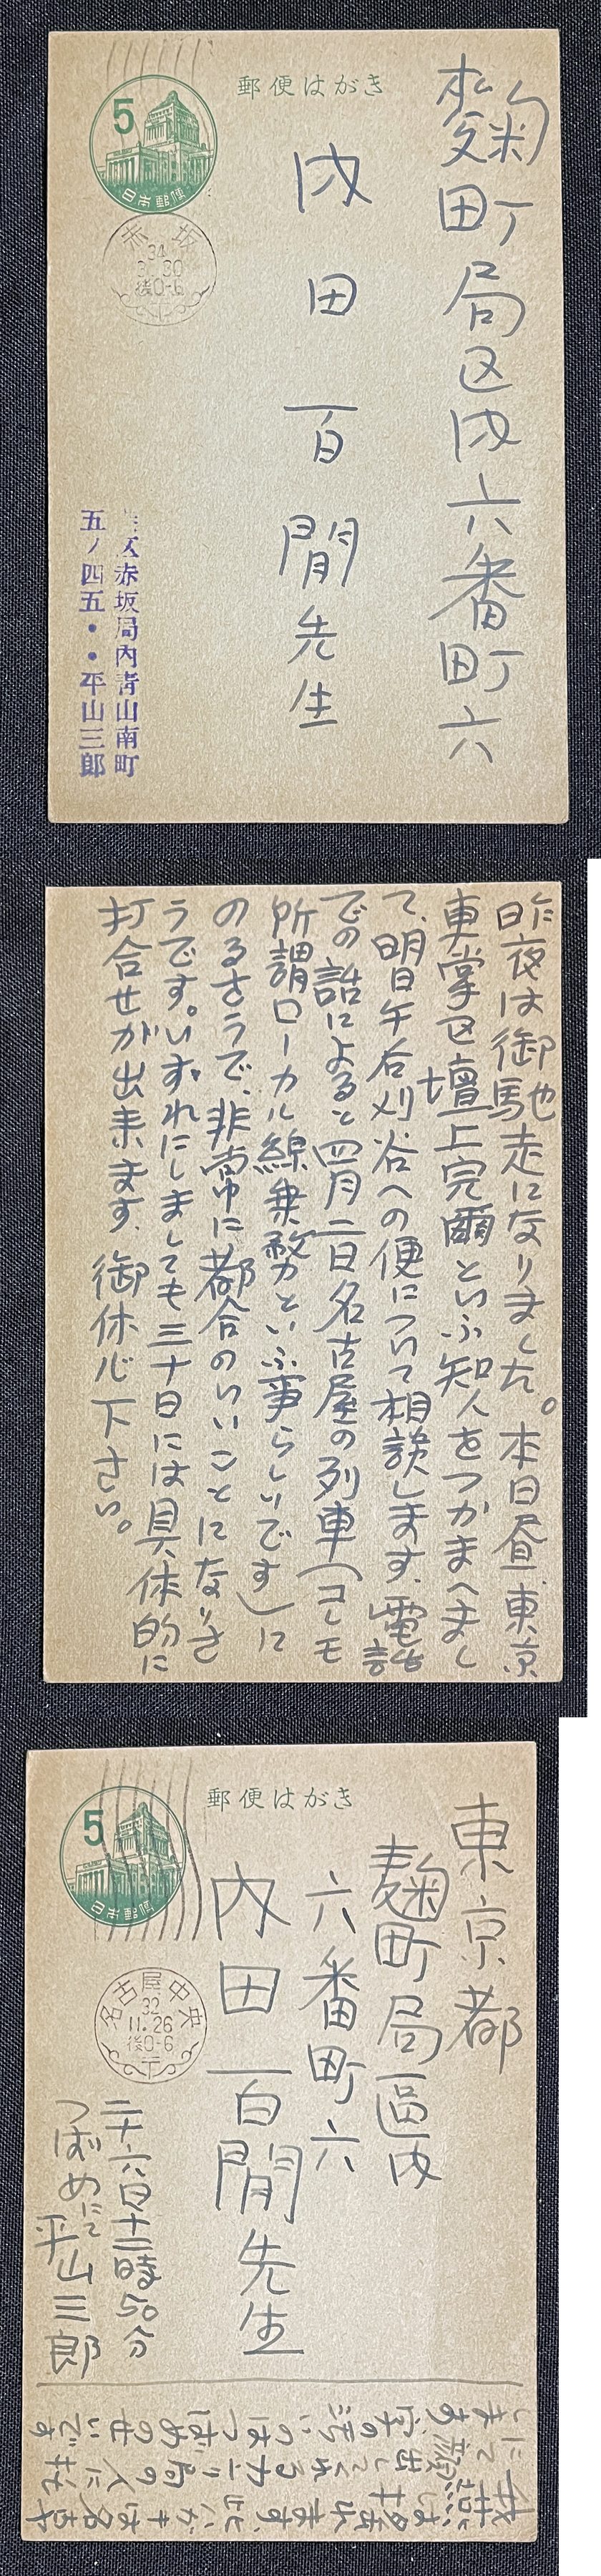 郵便はがき
5
日本郵便
赤坂
34
3.30
後0-6
麹町局区内六番町六
内田百閒先生
区赤坂局内青山南町
五ノ四五・・平山三郎
昨夜は御馳走になりました。本日昼、東京
車掌区壇上完爾といふ知人をつかまへまし
て、明日午后刈谷への便について相談します、電話
での話によると四月二日名古屋の列車(コレモ
所謂ローカル線乗務といふ事らしいです)に
のるさうで、非常に都合のいいことになりさ
うです。いずれにしましても三十日には具体的に
打合せが出来ます、御休心下さい。
郵便はがき
5
日本郵便
名古屋中央
32
11.26
後0-6
東京都
麹町局區内
六番町六
内田百閒先生
二十六日十二時50分
つばめにて
平山三郎
此ハガキは名古や
にて
します、字の汚いのはつばめのせいです